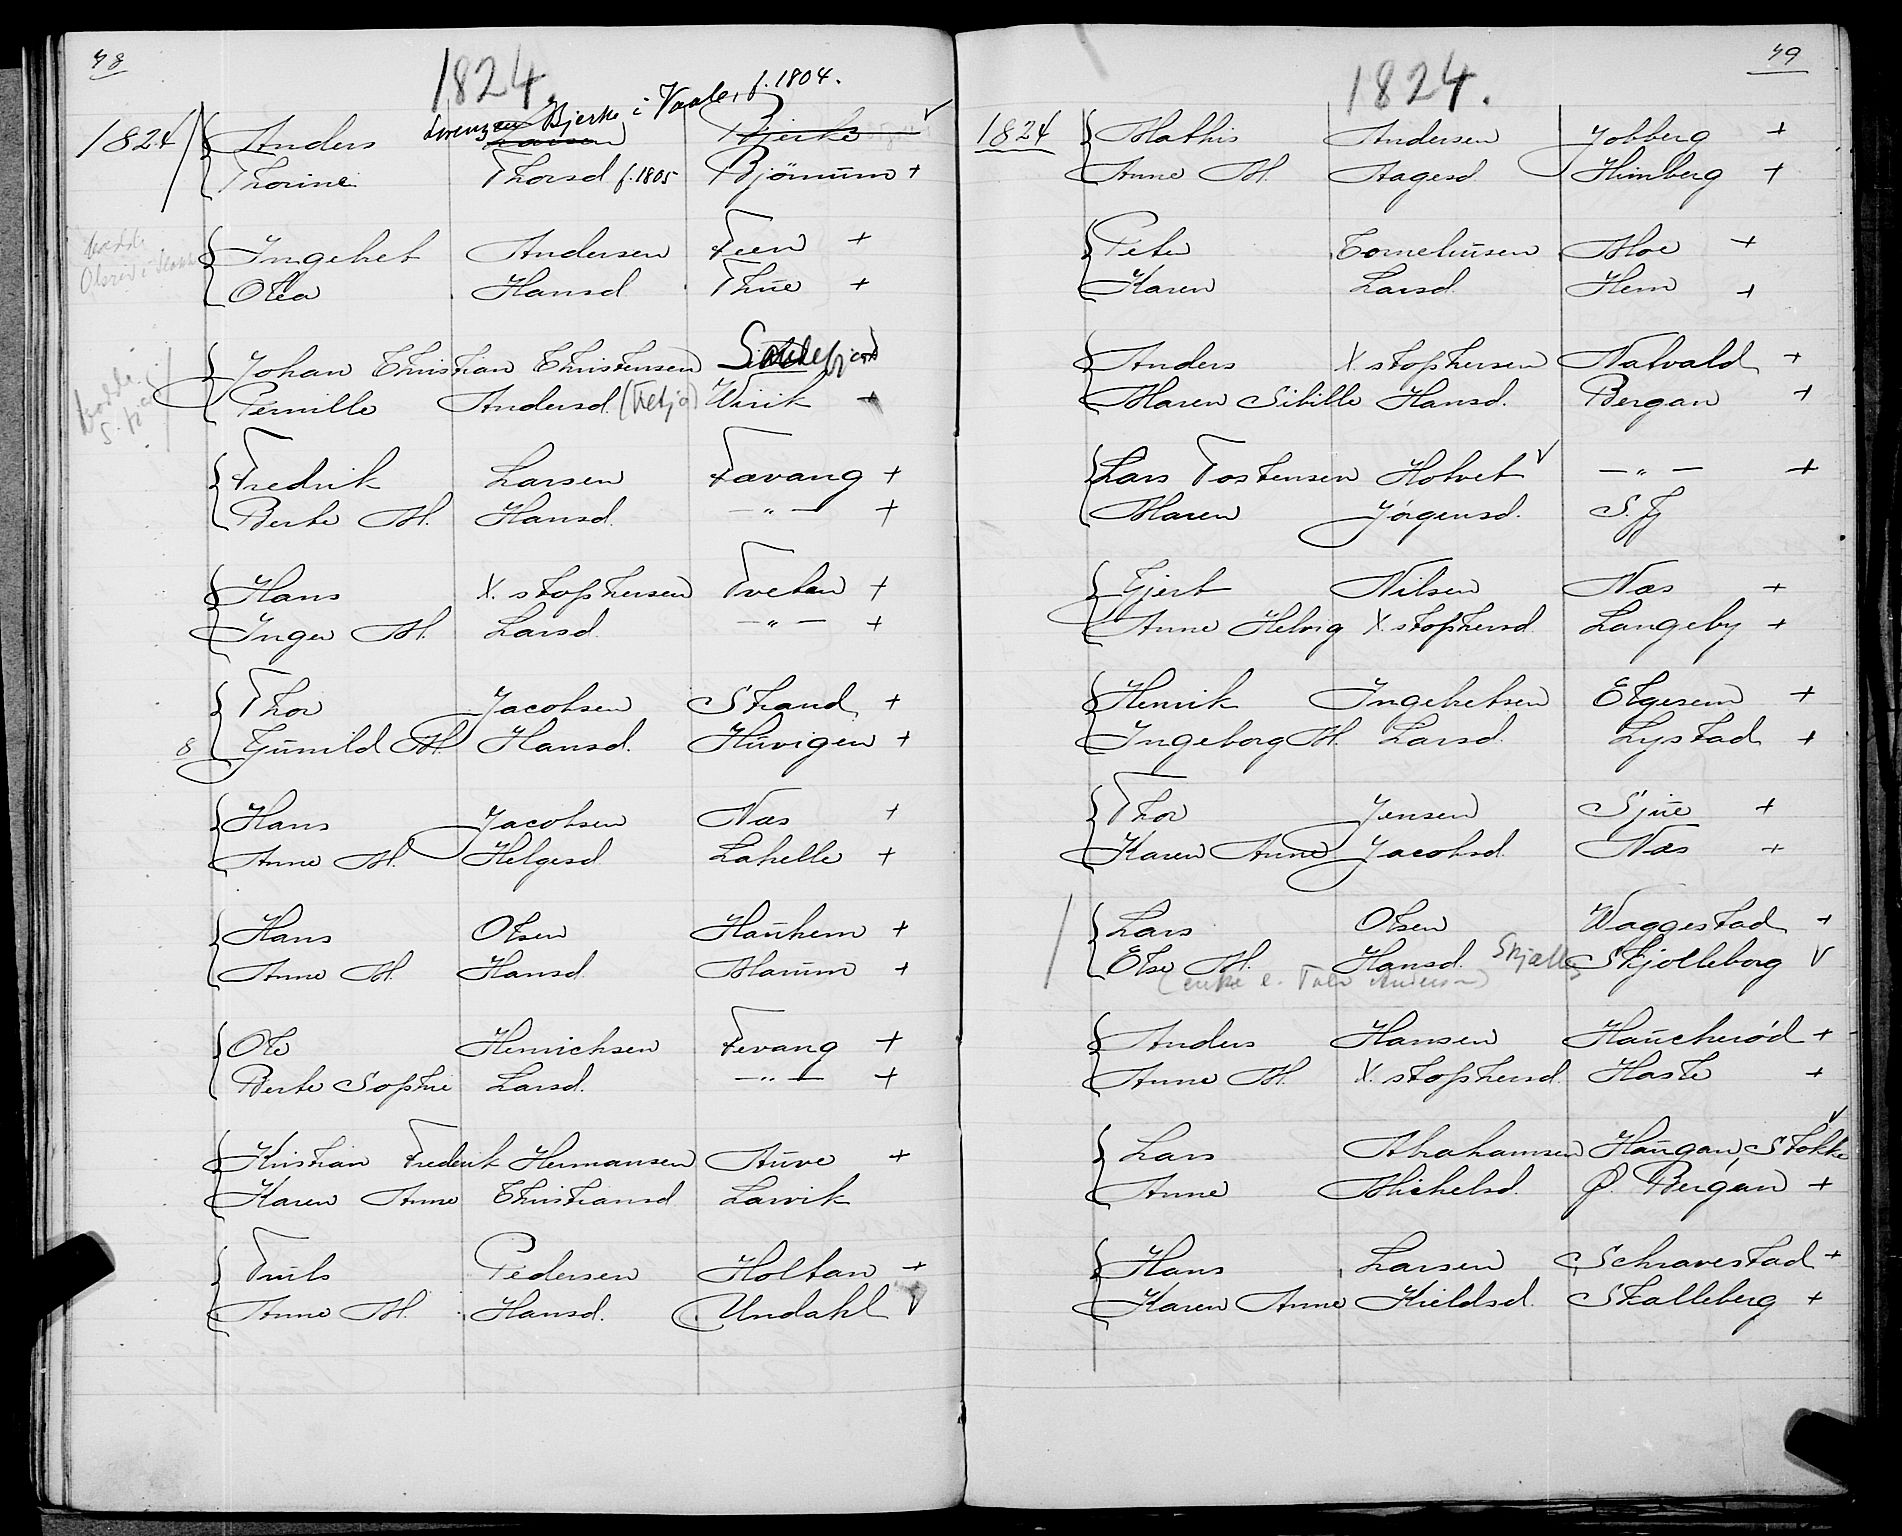 48
1824.
Lorenzen Bjerke i Vaale, f. 1804.
1824 Anders Larsen Bjerke v
Thorine Thorsd f. 1805 Bjørnum +
Ingebret Andersen Feen +
Olea Hansd. Thue +
Johan Christian Christensen Sandefjord
Pernille Andersd. Virik +
Fredrik Larsen Fævang +
Berte M. Hansd. — " — +
Hans X.stophersen Tveten +
Inger M. Larsd. — " — +
Thor Jacobsen Strand +
8 Gunild M. Hansd. Huvigen +
Hans Jacobsen Næs +
Anne M. Helgesd. Lahelle +
Hans Olsen Haukem +
Anne M. Hansd. Marum +
Ole Henrichsen Fevang +
Berte Sophie Larsd. — " — +
Kristian Frederik Hermansen Auve +
Karen Anne Christiansd. Larvik
Truls Pedersen Holtan +
Anne M. Hansd. Undahl v
49
1824.
1824 Mathis Andersen Jobberg +
Anne M. Aagesd. Himberg +
Peter Corneliusen Moe +
Karen Larsd. Hem +
Anders X.stophersen Natvald +
Maren Sibille Hansd. Bergan +
Lars Tostensen Holvet v — " — +
Maren Jørgensd. S. Fj
Gjert Nilsen Næs +
Anne Helvig X.stophersd. Langeby +
Henrik Ingebretsen Elgesem +
Ingeborg M. Larsd. Lystad +
Thor Jensen Sjue +
Karen Anne Jacobsd. Næs +
Lars Olsen Waggestad +
Else M. Hansd. Skjolleborg v
(enke e. Andersen)
Anders Hansen Haucherød +
Anne M. X.stophersd. Hasle +
Lars Abrahamsen Haugan, Stokke v
Anne Michelsd. Ø. Bergan +
Hans Larsen Schravestad +
Karen Anne Kieldsd. Skalleberg +